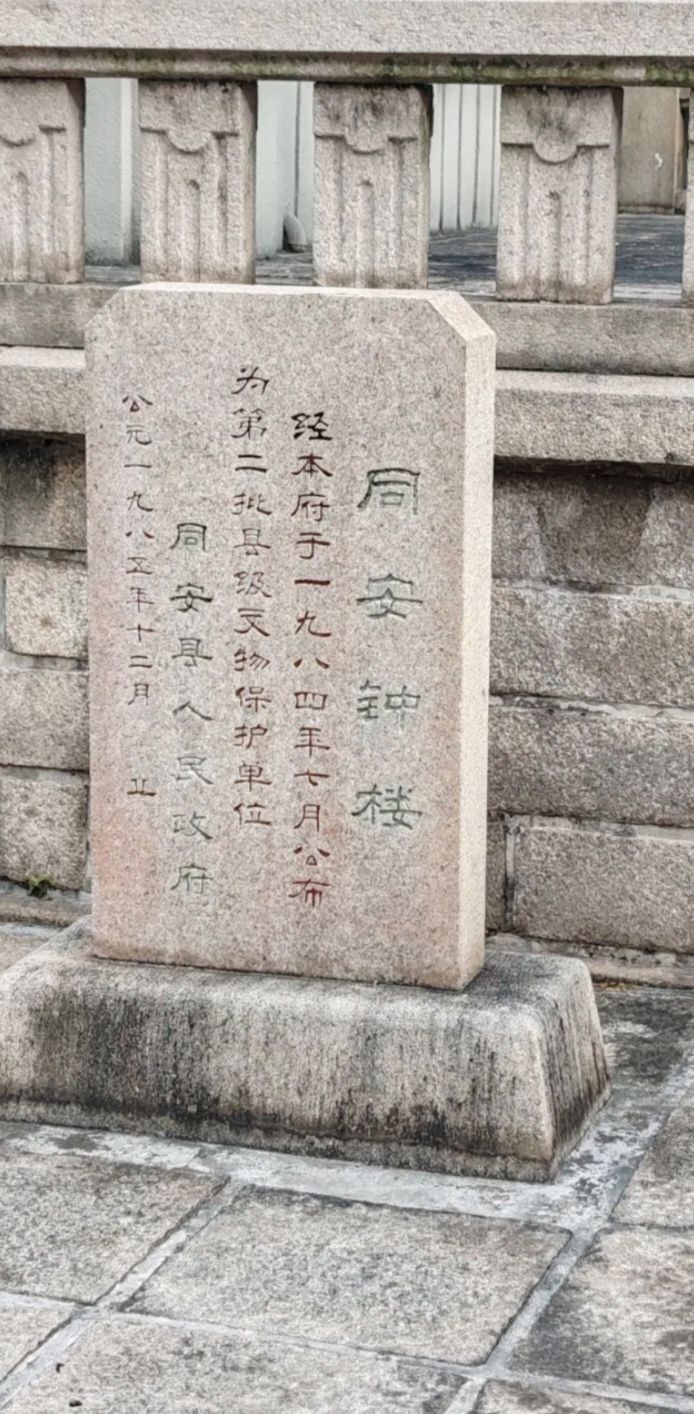 同安钟楼
经本府于一九八四年七月公布
为第二批县级文物保护单位
同安县人民政府
公元一九八五年十二月 立